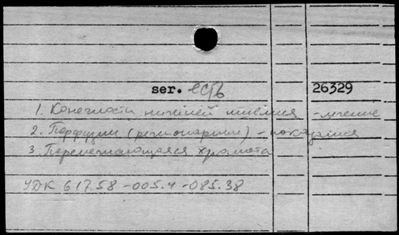 ser. есть 26329
1. Конечности нижней ишемия - лечение
2. Перфузии (регионарные) - показания
3. Перемежающаяся хромота
УДК 617.58-005.4-085.38